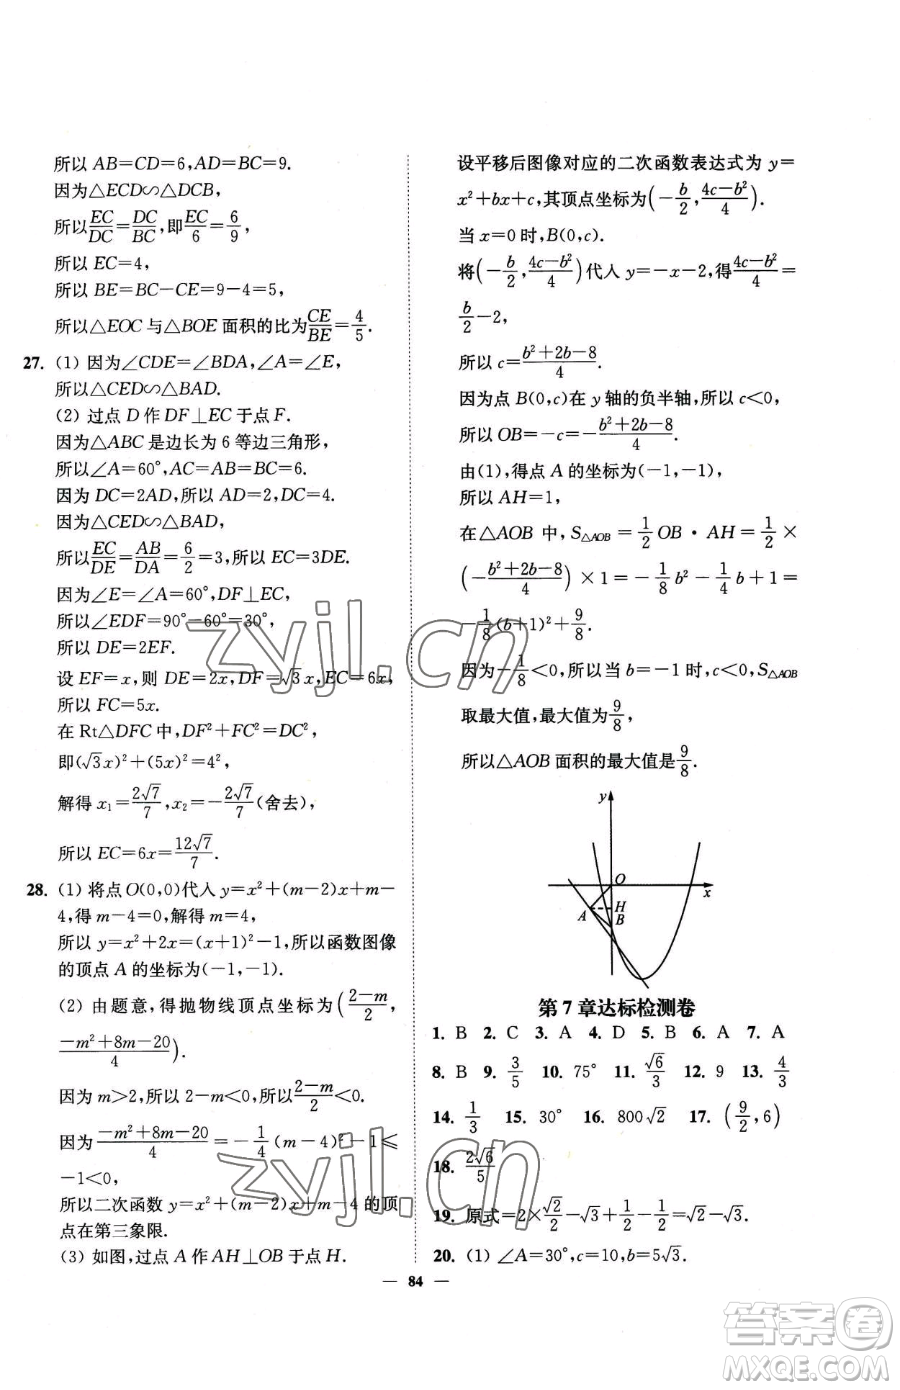 所以 AB=CD=6,AD=BC=9.
因为△ECD∽△DCB,
所以EC/DC=DC/BC,即EC/6=6/9,
所以 EC=4,
所以 BE=BC-CE=9-4=5,
所以△EOC 与△BOE 面积的比为CE/BE=4/5.
27. (1) 因为∠CDE=∠BDA,∠A=∠E,
所以△CED∽△BAD.
(2) 过点 D 作 DF⊥EC 于点 F.
因为△ABC 是边长为 6 等边三角形,
所以∠A=60°,AC=AB=BC=6.
因为 DC=2AD,所以 AD=2,DC=4.
因为△CED∽△BAD,
所以EC/DE=AB/DA=6/2=3,所以 EC=3DE.
因为∠E=∠A=60°,DF⊥EC,
所以∠EDF=90°-60°=30°,
所以 DE=2EF.
设 EF=x,则 DE=2x,DF=√3x,EC=6x,
所以 FC=5x.
在 Rt△DFC 中,DF²+FC²=DC²,
即(√3x)²+(5x)²=4²,
解得 x₁=2√7/7,x₂=-2√7/7(舍去),
所以 EC=6x=12√7/7.
28. (1) 将点 O(0,0)代入 y=x²+(m-2)x+m-
4,得 m-4=0,解得 m=4,
所以 y=x²+2x=(x+1)²-1,所以函数图像
的顶点 A 的坐标为(-1,-1).
(2) 由题意,得抛物线顶点坐标为((2-m)/2,
(-m²+8m-20)/4).
因为 m>2,所以 2-m<0,所以(2-m)/2<0.
因为(-m²+8m-20)/4=-1/4(m-4)²-1≤
-1<0,
所以二次函数 y=x²+(m-2)x+m-4 的顶
点在第三象限.
(3) 如图,过点 A 作 AH⊥OB 于点 H.
设平移后图像对应的二次函数表达式为 y=
x²+bx+c,其顶点坐标为(-b/2,(4c-b²)/4).
当 x=0 时,B(0,c).
将(-b/2,(4c-b²)/4)代入 y=-x-2,得(4c-b²)/4=
b/2-2,
所以 c=(b²+2b-8)/4.
因为点 B(0,c)在 y 轴的负半轴,所以 c<0,
所以 OB=-c=-(b²+2b-8)/4.
由(1),得点 A 的坐标为(-1,-1),
所以 AH=1,
在△AOB 中,S△AOB=1/2OB·AH=1/2×
(-(b²+2b-8)/4)×1=-1/8b²-1/4b+1=
-1/8(b+1)²+9/8.
因为-1/8<0,所以当 b=-1 时,c<0,S△AOB
取最大值,最大值为9/8,
所以△AOB 面积的最大值是9/8.
y
O
x
A
H
B
第 7 章达标检测卷
1. B 2. C 3. A 4. D 5. B 6. A 7. A
8. B 9. 3/5 10. 75° 11. √6/3 12. 9 13. 4/3
14. 1/3 15. 30° 16. 800√2 17. (9/2,6)
18. 2√6/5
19. 原式=2×√2/2-√3+1/2-1/2=√2-√3.
20. (1) ∠A=30°,c=10,b=5√3.
— 84 —
zyjl.cn
zyjl.cn
答案圈
MXQE.COM